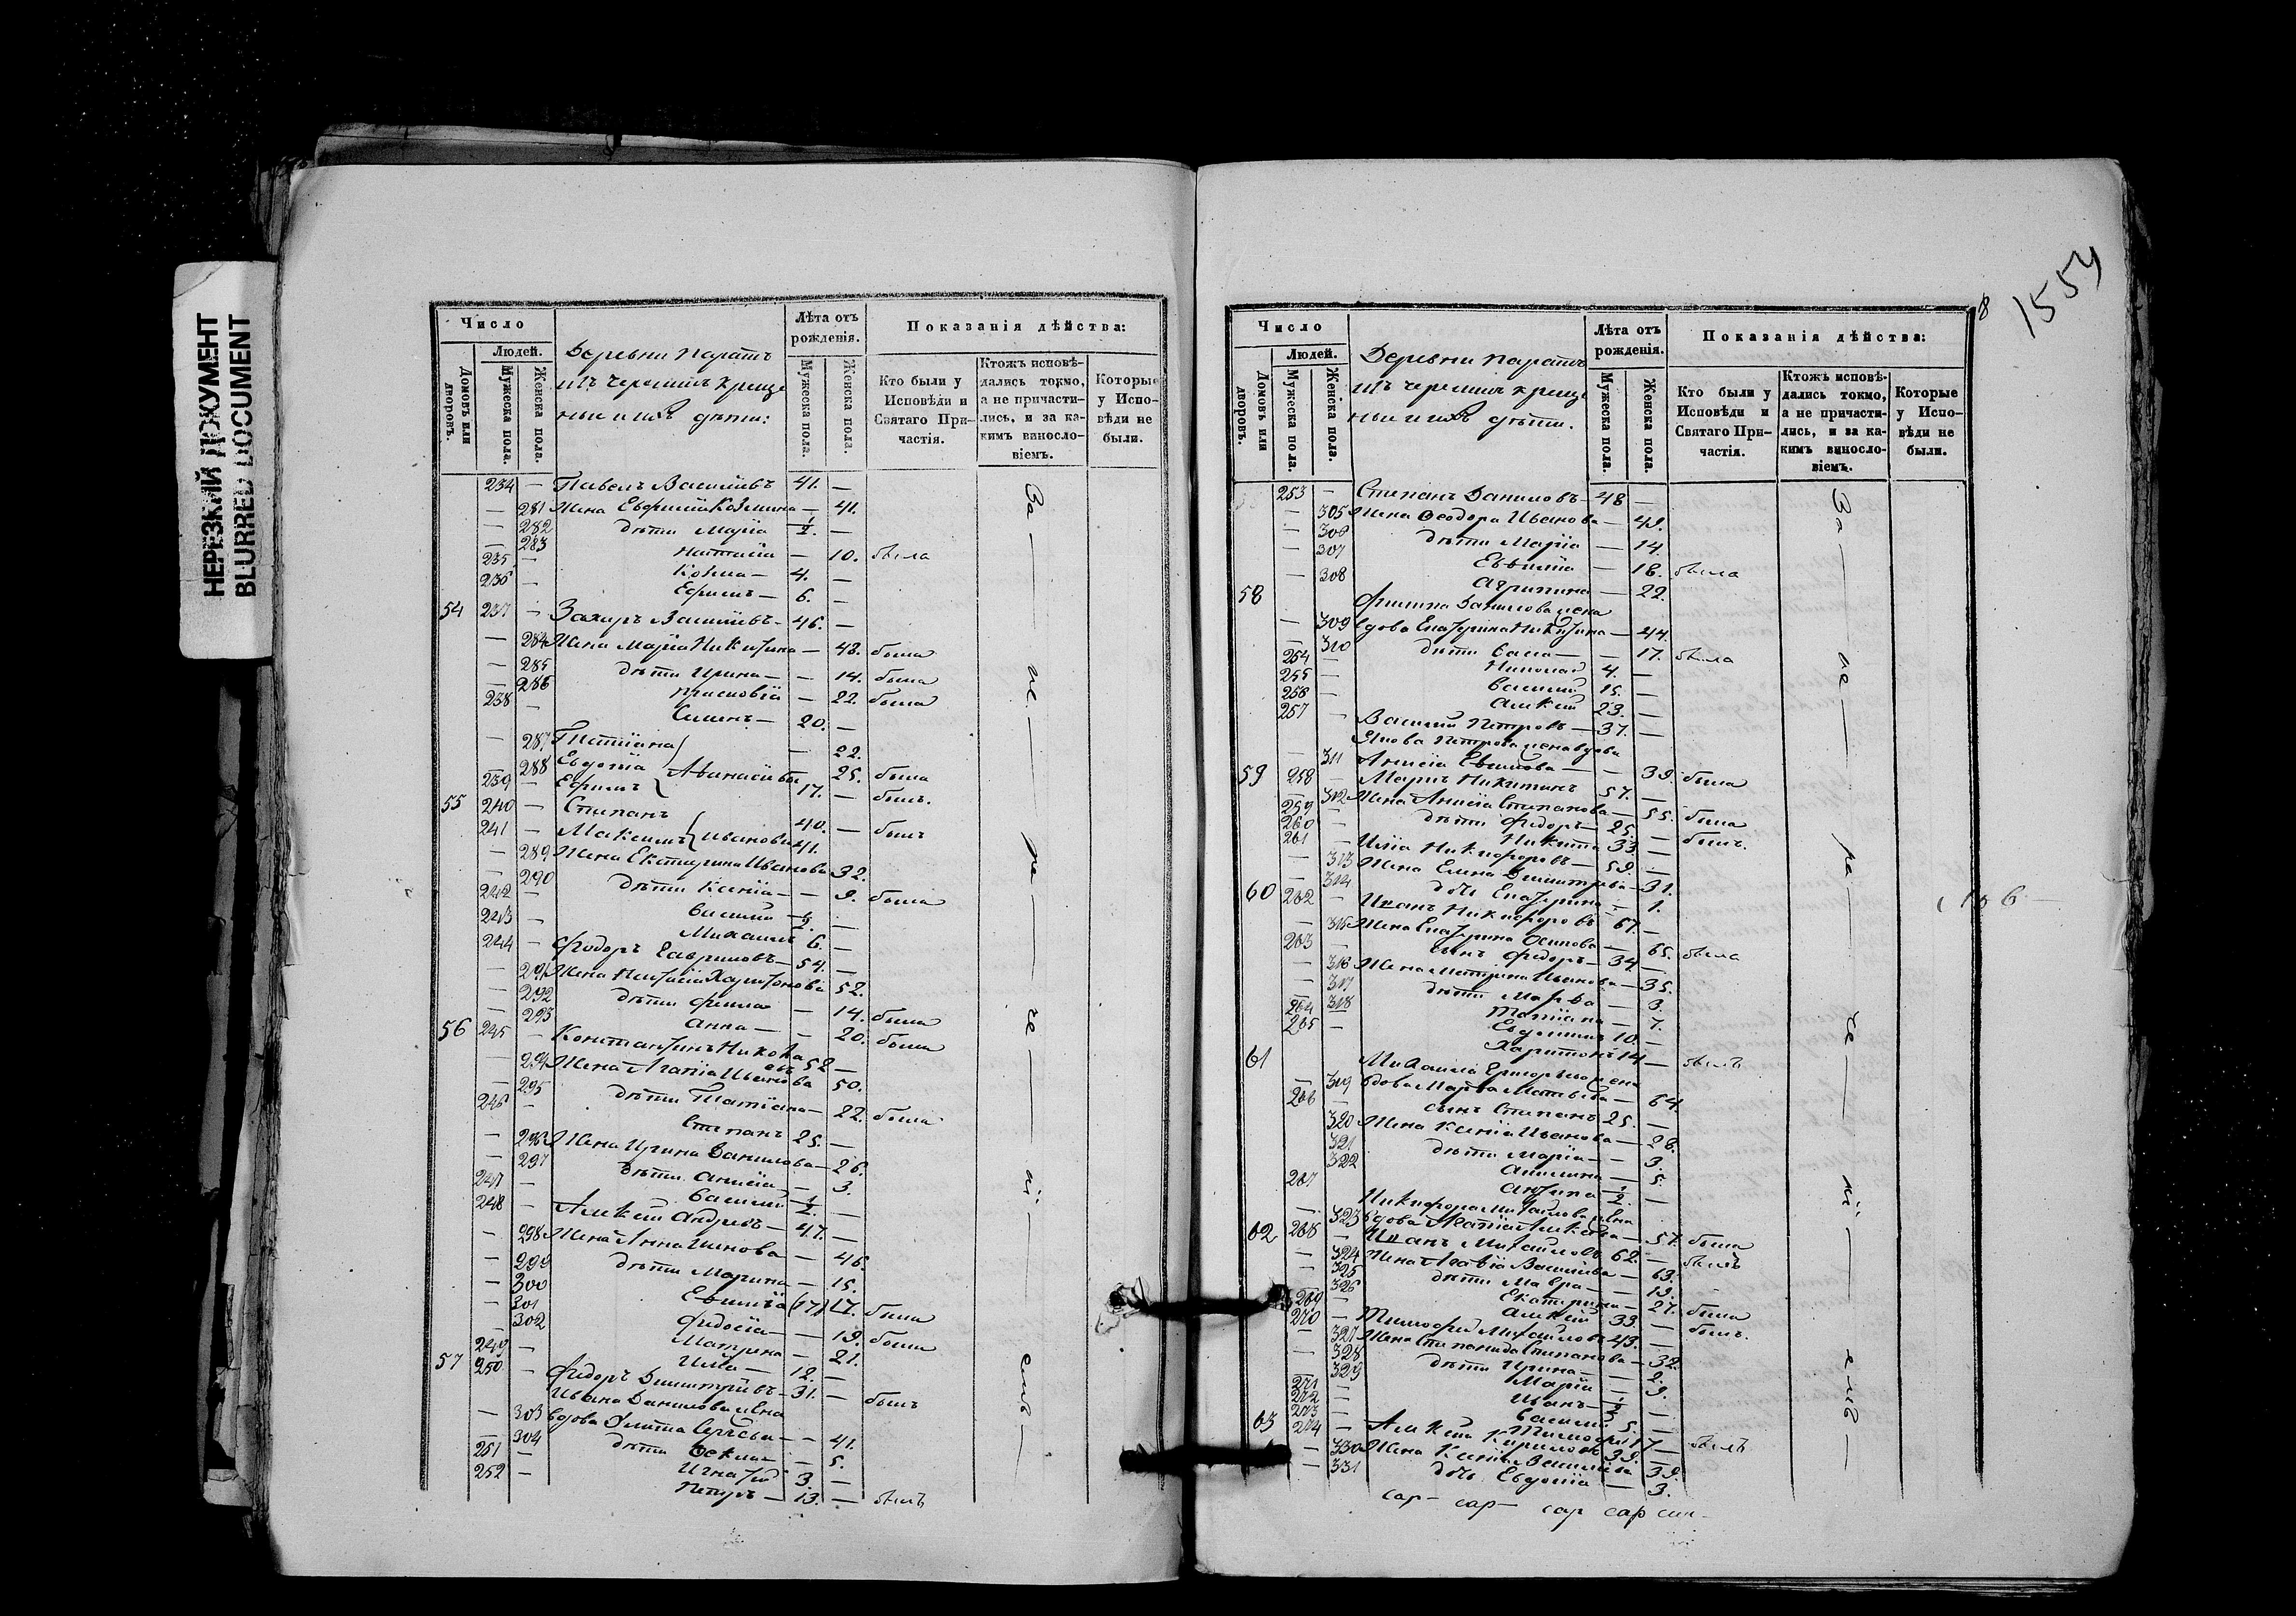 НЕРЕЗКИЙ ДОКУМЕНТ
BLURRED DOCUMENT
Число
Людей.
Домовъ или дворовъ.
Мужеска пола.
Женска пола.
Деревни Паратъ
изъ черемисъ креще
ные и ихъ дѣти:
Лѣта отъ рожденія.
Мужеска пола.
Женска пола.
Показанія дѣйства:
Кто были у Исповѣди и Святаго При-частія.
Ктожъ исповѣ-дались токмо, а не причасти-лись, и за ка-кимъ виносло-віемъ.
Которые у Испо-вѣди не были.
234 — Павелъ Васильевъ 41. —
— 281 Жена Евфимія Козмина — 41.
— 282 дѣти Марія — 1/2. —
— 283 Наталія — 10. была
235 — Козма — 4. —
236 — Ефимъ — 6. —
54 237 — Захаръ Васильевъ — 46. —
— 284 Жена Марія Никитина — 43. была
— 285 дѣти Ирина — — 14. была
— 286 Прасковія — 22. была
238 — Семенъ — 20. —
— 287 Татіана — 22.
— 288 Евдокія Афанасьевы 25. была
239 — Ефимъ 17. — былъ.
55 240 — Степанъ 40. — былъ
241 — Максимъ Ивановы 41.
— 289 Жена Екатерина Иванова 32.
— 290 дѣти Ксенія — — 9. была
242 — Василій — 1/2. —
243 — Михаилъ 6. —
244 — Ѳедоръ Гавриловъ — 54. —
— 291 Жена Наталія Харитонова 52.
— 292 дѣти — 14. была
— 293 Анна — — 20. была
56 245 — Константинъ Никола
евъ 52 —
— 294 Жена Агапія Иванова 50.
— 295 дѣти Татіана — 22. была
246 — Степанъ 25. —
— 296 Жена Ирина Данилова — 26.
— 297 дѣти Анисія — 3.
247 — Василій — 1/2. —
248 — Алексѣй Андреевъ — 47. —
— 298 Жена Анна — 46.
— 299 дѣти Марина — 15.
— 300 Евфимія (17) 17. была
— 301 Ѳедосія — — 19. была
— 302 Матрина — 21.
249 — Илья — 12. —
57 250 — Ѳедоръ Димитріевъ — 31. — былъ
Ивана Данилова жена
— 303 вдова Улита — — 41.
— 304 дѣти Ѳекла — — 5.
251 — Игнатій 3. —
252 — Петръ — 13. — былъ
За — не — ра — че — ні — емъ —
8
1554
Число
Людей.
Домовъ или дворовъ.
Мужеска пола.
Женска пола.
Деревни Паратъ
изъ черемисъ креще
ные и ихъ дѣти.
Лѣта отъ рожденія.
Мужеска пола.
Женска пола.
Показанія дѣйства:
Кто были у Исповѣди и Святаго При-частія.
Ктожъ исповѣ-дались токмо, а не причасти-лись, и за ка-кимъ виносло-віемъ.
Которые у Испо-вѣди не были.
253 — Степанъ Даниловъ — 48 —
— 305 Жена Ѳеодора Иванова — 49.
— 306 дѣти Марія — 14.
— 307 Евфимія — 18. была
— 308 Агрипина — 22.
58 Филипа Данилова жена
— 309 вдова Екатерина Никитина — 44.
310 дѣти — — 17. была
254 — Николай 4. —
255 — Василій 15. —
256 — Алексѣй 23. —
257 — Василій Петровъ — 37. —
Якова Петрова жена вдова
— 311 Анисія Евфимова — — 39. была
59 258 — Маркъ Никитинъ 57. —
— 312 Жена Анисія Степанова — 55. была
259 — дѣти Ѳедоръ — 25. — былъ.
260 — Никита 33 —
261 — Илія Никифоровъ — 59. —
— 313 Жена Елена Димитрева — 31.
— 314 дочь Екатерина — 1.
60 262 — Иванъ Никифоровъ 67. —
— 315 Жена Екатерина Осипова — 65. была
263 — сынъ Ѳедоръ — 34. —
— 316 Жена Матрина Иванова — 35.
— 317 дѣти Марѳа — 3.
318 Татіана — 7.
264 — Евдокимъ 10. —
265 — Харитонъ 14 — былъ
61 Михаила Григорьева жена
— 319 вдова Марѳа Матвѣева — 64.
266 — сынъ Степанъ 25. —
320 Жена Ксенія Иванова — 26.
321 дѣти Марія — — 3.
322 Акилина — 5.
267 Антипа — 1/2. —
Никифора Михайлова жена
— 323 вдова Агапія Алексѣева — 57. была
62 268 — Иванъ Михайловъ 62. — былъ
— 324 Жена Агафія Васильева — 63.
— 325 дѣти Мавра — — 19.
— 326 Екатерина — 27. была
269 — Алексѣй 33. — былъ.
270 — Тимофей Михайловъ 43. —
— 327 Жена Степанида Степанова — 32.
— 328 дѣти Ирина — — 2.
— 329 Марія — 9.
271 — Иванъ — 1/2 —
272 — Василій 5. —
273 — Тимофей 17 — былъ
63 274 — Алексѣй Кириловъ 39. —
— 330 Жена Ксенія Васильева 39.
— 331 дочь Евдокія — 3.
За — не — ра — че — ні — емъ —